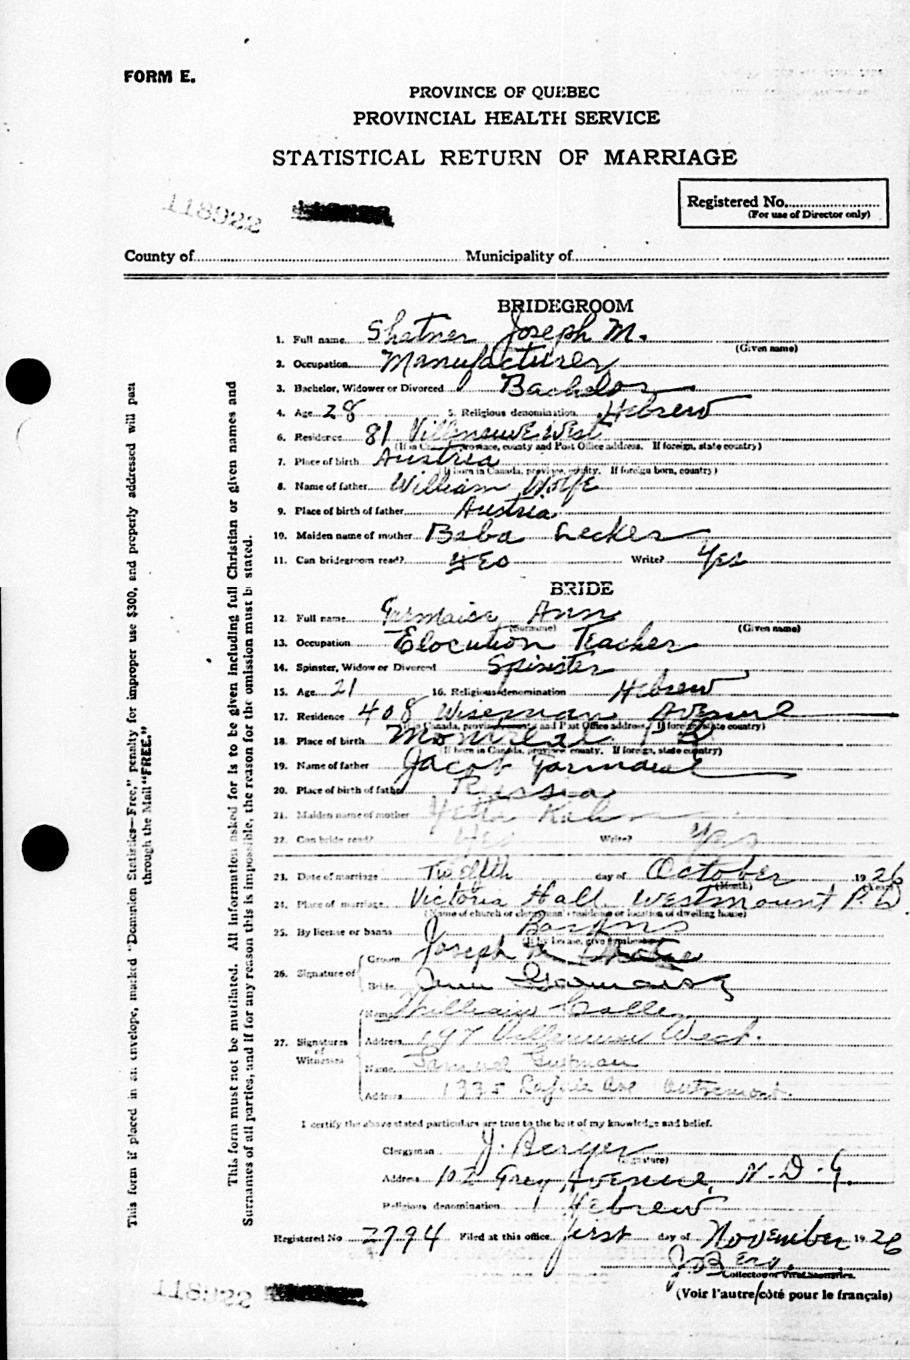 FORM E.
PROVINCE OF QUEBEC
PROVINCIAL HEALTH SERVICE
STATISTICAL RETURN OF MARRIAGE
118922
Registered No.
(For use of Director only)
County of Municipality of
BRIDEGROOM
1. Full name Shatner Joseph M.
(Given name)
2. Occupation Manufacturer
3. Bachelor, Widower or Divorced Bachelor
4. Age 28 5. Religious denomination Hebrew
6. Residence 81 Villeneuve West
(If in Canada, province, county and Post Office address. If foreign, state country)
7. Place of birth Austria
(If born in Canada, province, county. If foreign born, country)
8. Name of father William Wolfe
9. Place of birth of father Austria
10. Maiden name of mother Baba Lecker
11. Can bridegroom read? Yes Write? Yes
BRIDE
12. Full name Garmaise Ann
(Surname) (Given name)
13. Occupation Elocution Teacher
14. Spinster, Widow or Divorced Spinster
15. Age 21 16. Religious denomination Hebrew
17. Residence 408 Wiseman Avenue
(If in Canada, province, county and Post Office address. If foreign, state country)
18. Place of birth Montreal P Q
(If born in Canada, province county. If foreign, state country)
19. Name of father Jacob Garmaise
20. Place of birth of father Russia
21. Maiden name of mother Yetta Kahn
22. Can bride read? Yes Write? Yes
23. Date of marriage Twelfth day of October 1926
(Month) (Year)
24. Place of marriage Victoria Hall. Westmount P.Q.
(Name of church or clergyman's residence or location of dwelling house)
25. By license or banns Banns
(If by license, give number)
26. Signature of Groom Joseph M Shatner
Bride Ann Garmaise
27. Signatures of Witnesses
Name William
Address Villeneuve West.
Name Samuel Guttman
Address 1335 Ave Outremont.
I certify the above stated particulars are true to the best of my knowledge and belief.
Clergyman J. Berger
(Signature)
Address 102 Grey Avenue, N.D.G.
Religious denomination Hebrew
Registered No 2794 Filed at this office first day of November 1926
J Berg.
Collector of Vital Statistics.
(Voir l'autre côté pour le français)
118922
This form must not be mutilated. All information asked for is to be given including full Christian or given names and
Surnames of all parties, and if for any reason this is impossible, the reason for the omission must be stated.
This form if placed in an envelope, marked "Dominion Statistics—Free," penalty for improper use $300, and properly addressed will pass
through the Mail "FREE."